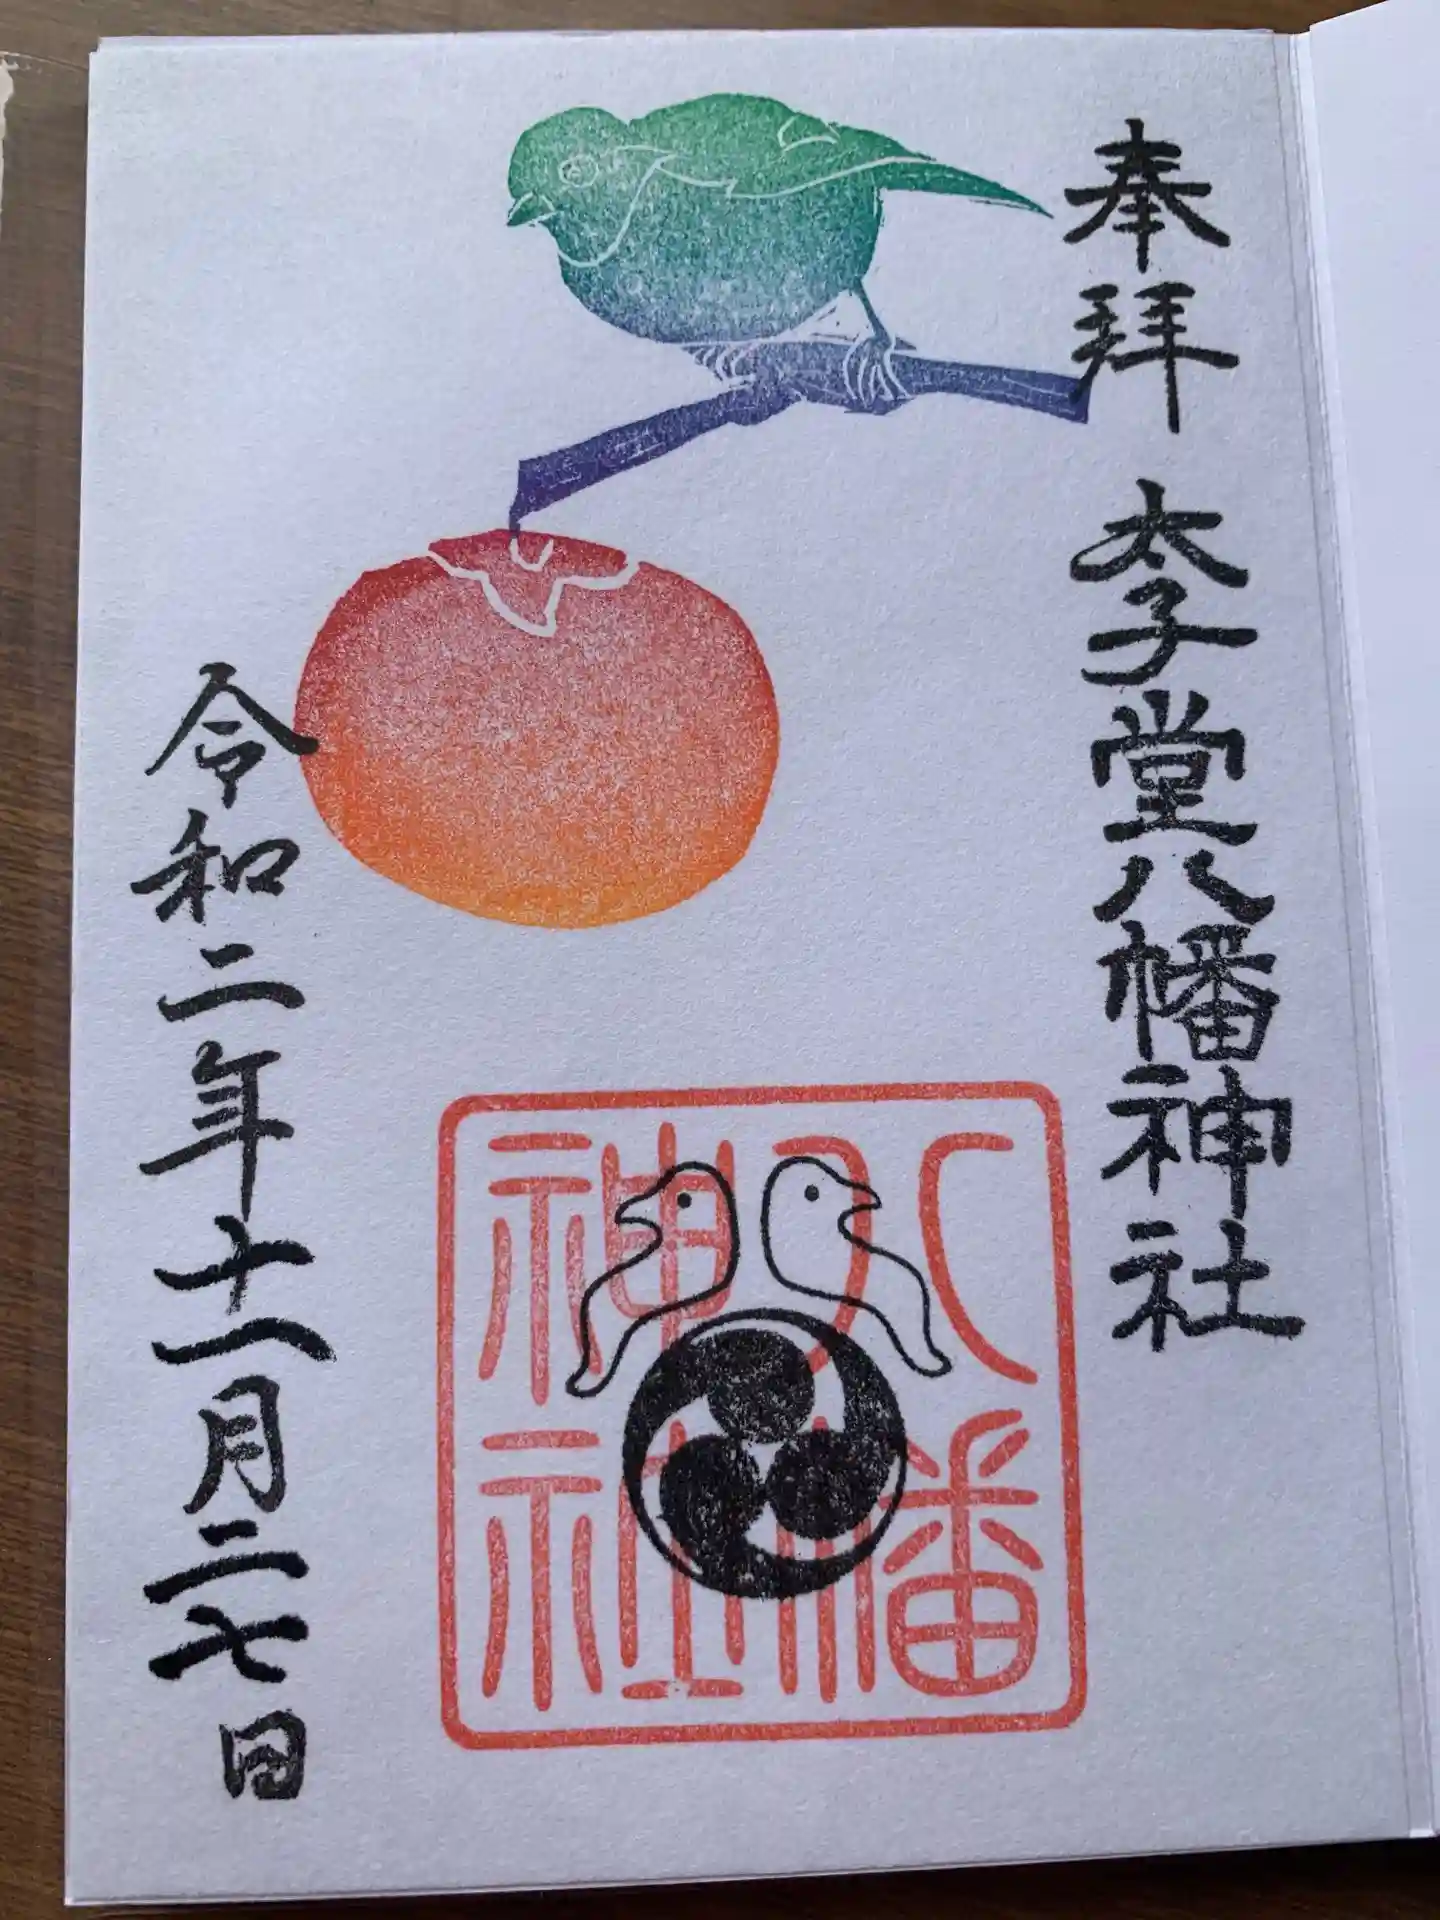 奉拝 太子堂八幡神社
八幡
神社
令和二年十一月二七日